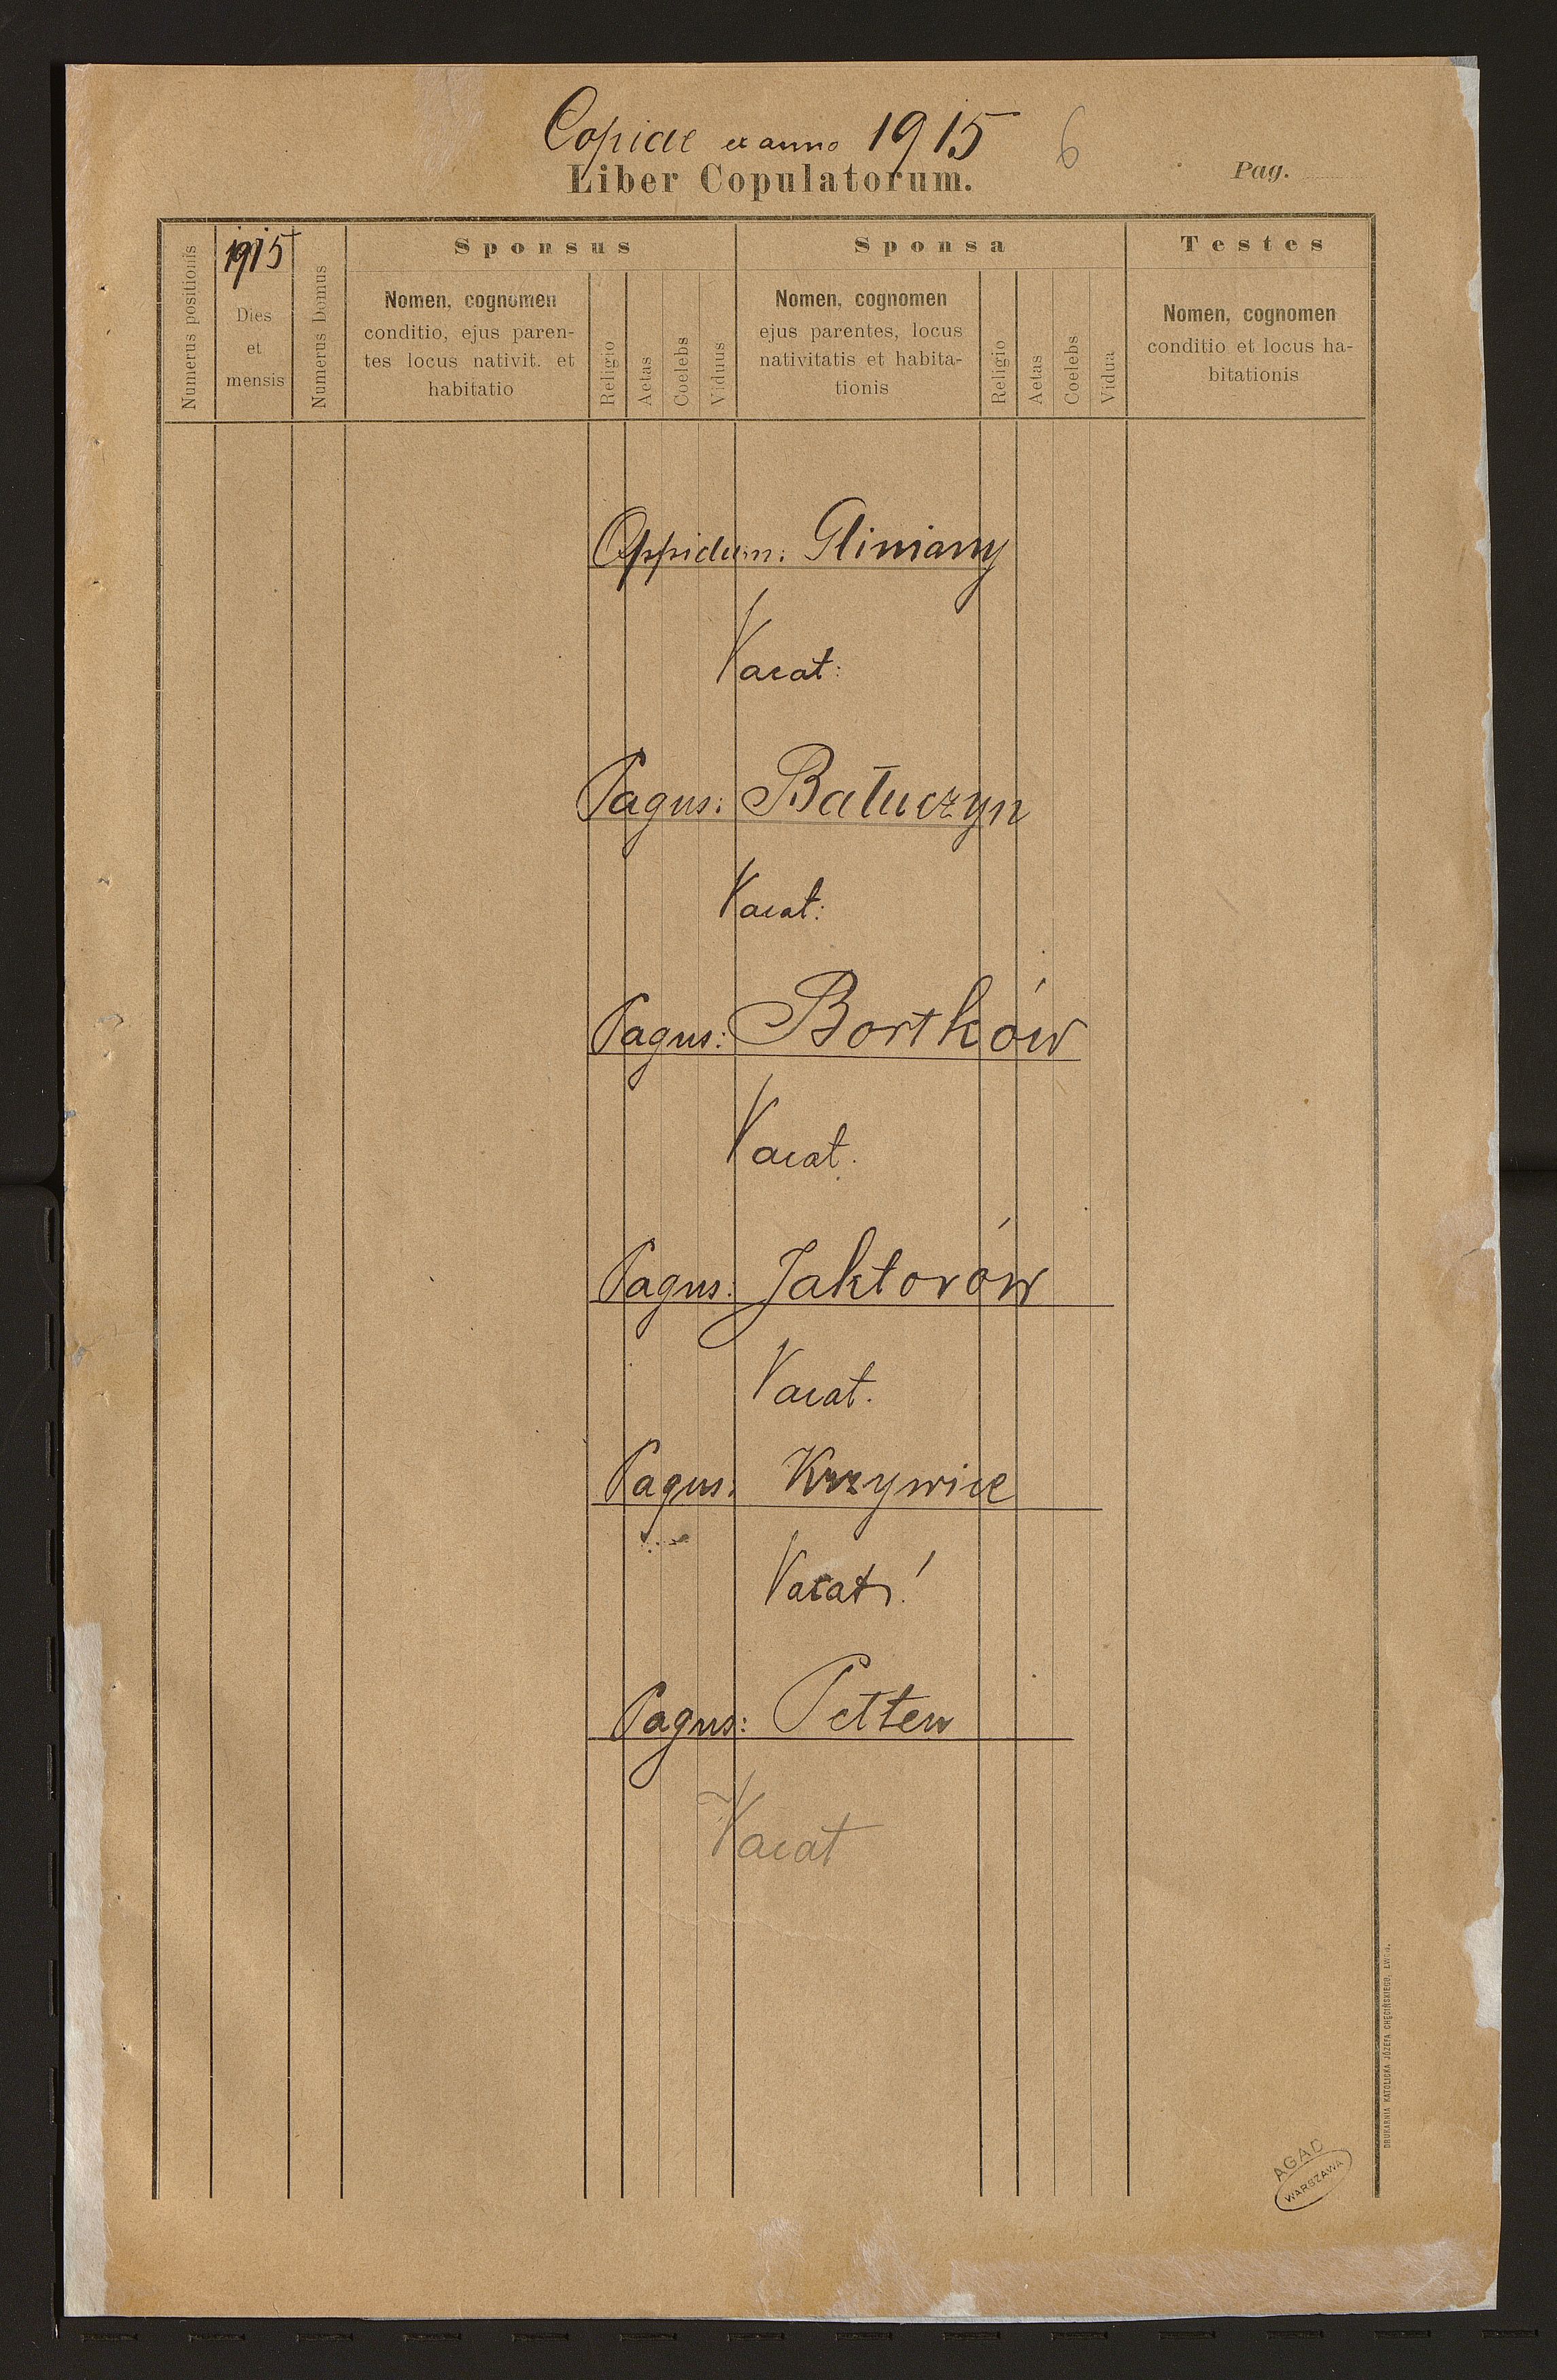 Copiae ex anno 1915 6
Liber Copulatorum.
Pag.
Numerus positionis
1915
Dies
et
mensis
Numerus Domus
Sponsus
Nomen, cognomen
conditio, ejus paren-
tes locus nativit. et
habitatio
Religio
Aetas
Coelebs
Viduus
Sponsa
Nomen, cognomen
ejus parentes, locus
nativitatis et habita-
tionis
Religio
Aetas
Coelebs
Vidua
Testes
Nomen, cognomen
conditio et locus ha-
bitationis
Oppidum: Gliniany
Vacat:
Pagus: Bałuczyn
Vacat:
Pagus: Bortków
Vacat.
Pagus: Jaktorów
Vacat.
Pagus: Krzywice
Vacat!
Pagus: Pełtew
Vacat
DRUKARNIA KATOLICKA JÓZEFA CHĘCIŃSKIEGO,
AGAD
WARSZAWA